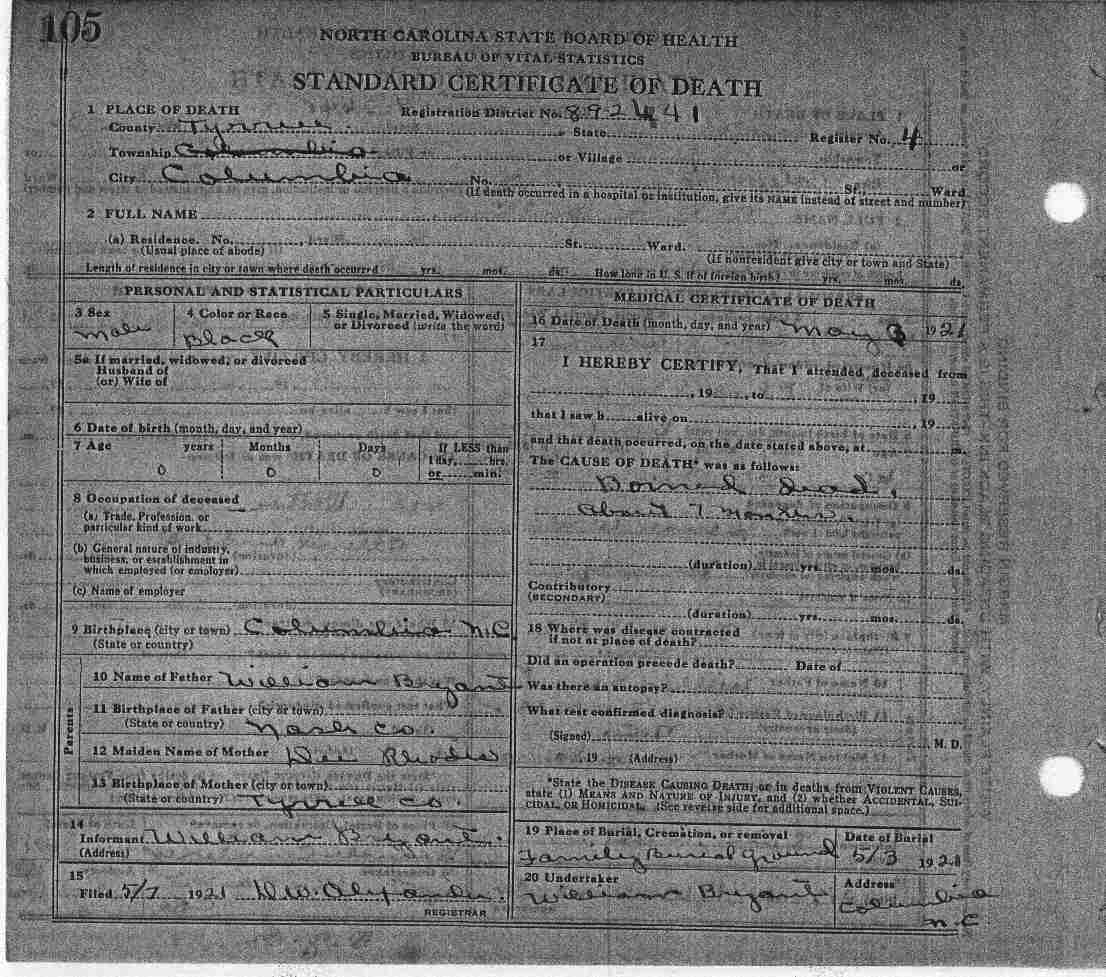 105
NORTH CAROLINA STATE BOARD OF HEALTH
BUREAU OF VITAL STATISTICS
STANDARD CERTIFICATE OF DEATH
1 PLACE OF DEATH Registration District No. 892 41
County Tyrrell State Register No. 4
Township Columbia or Village or
City Columbia No. St., Ward
(If death occurred in a hospital or institution, give its NAME instead of street and number)
2 FULL NAME
(a) Residence. No. St. Ward.
(Usual place of abode) (If nonresident give city or town and State)
Length of residence in city or town where death occurred yrs. mos. ds. How long in U. S. if of foreign birth? yrs. mos. ds.
PERSONAL AND STATISTICAL PARTICULARS
3 Sex
Male
4 Color or Race
Black
5 Single, Married, Widowed, or Divorced (write the word)
5a If married, widowed, or divorced
Husband of
(or) Wife of
6 Date of birth (month, day, and year)
7 Age years Months Days If LESS than
1 day, hrs.
0 0 0 or min.
8 Occupation of deceased
(a) Trade, Profession, or
particular kind of work
(b) General nature of industry,
business, or establishment in
which employed (or employer)
(c) Name of employer
9 Birthplace (city or town) Columbia N.C.
(State or country)
Parents
10 Name of Father William Bryant
11 Birthplace of Father (city or town)
(State or country) Nash Co.
12 Maiden Name of Mother Dee Rhodes
13 Birthplace of Mother (city or town)
(State or country) Tyrrell Co.
14
Informant William Bryant.
(Address)
15
Filed 5/7 1921 D.W. Alexander.
REGISTRAR
MEDICAL CERTIFICATE OF DEATH
16 Date of Death (month, day, and year) May 3 1921
17
I HEREBY CERTIFY, That I attended deceased from
, 19 , to , 19
that I saw h alive on , 19
and that death occurred, on the date stated above, at m.
The CAUSE OF DEATH* was as follows:
Borned dead,
About 7 months.
(duration) yrs. mos. ds.
Contributory
(SECONDARY)
(duration) yrs. mos. ds.
18 Where was disease contracted
if not at place of death?
Did an operation precede death? Date of
Was there an autopsy?
What test confirmed diagnosis?
(Signed) M. D.
, 19 (Address)
*State the DISEASE CAUSING DEATH, or in deaths from VIOLENT CAUSES,
state (1) MEANS AND NATURE OF INJURY, and (2) whether ACCIDENTAL, SUI-
CIDAL, OR HOMICIDAL. (See reverse side for additional space.)
19 Place of Burial, Cremation, or removal
Family Burial Ground
Date of Burial
5/3 1921
20 Undertaker
William Bryant
Address
Columbia
N.C